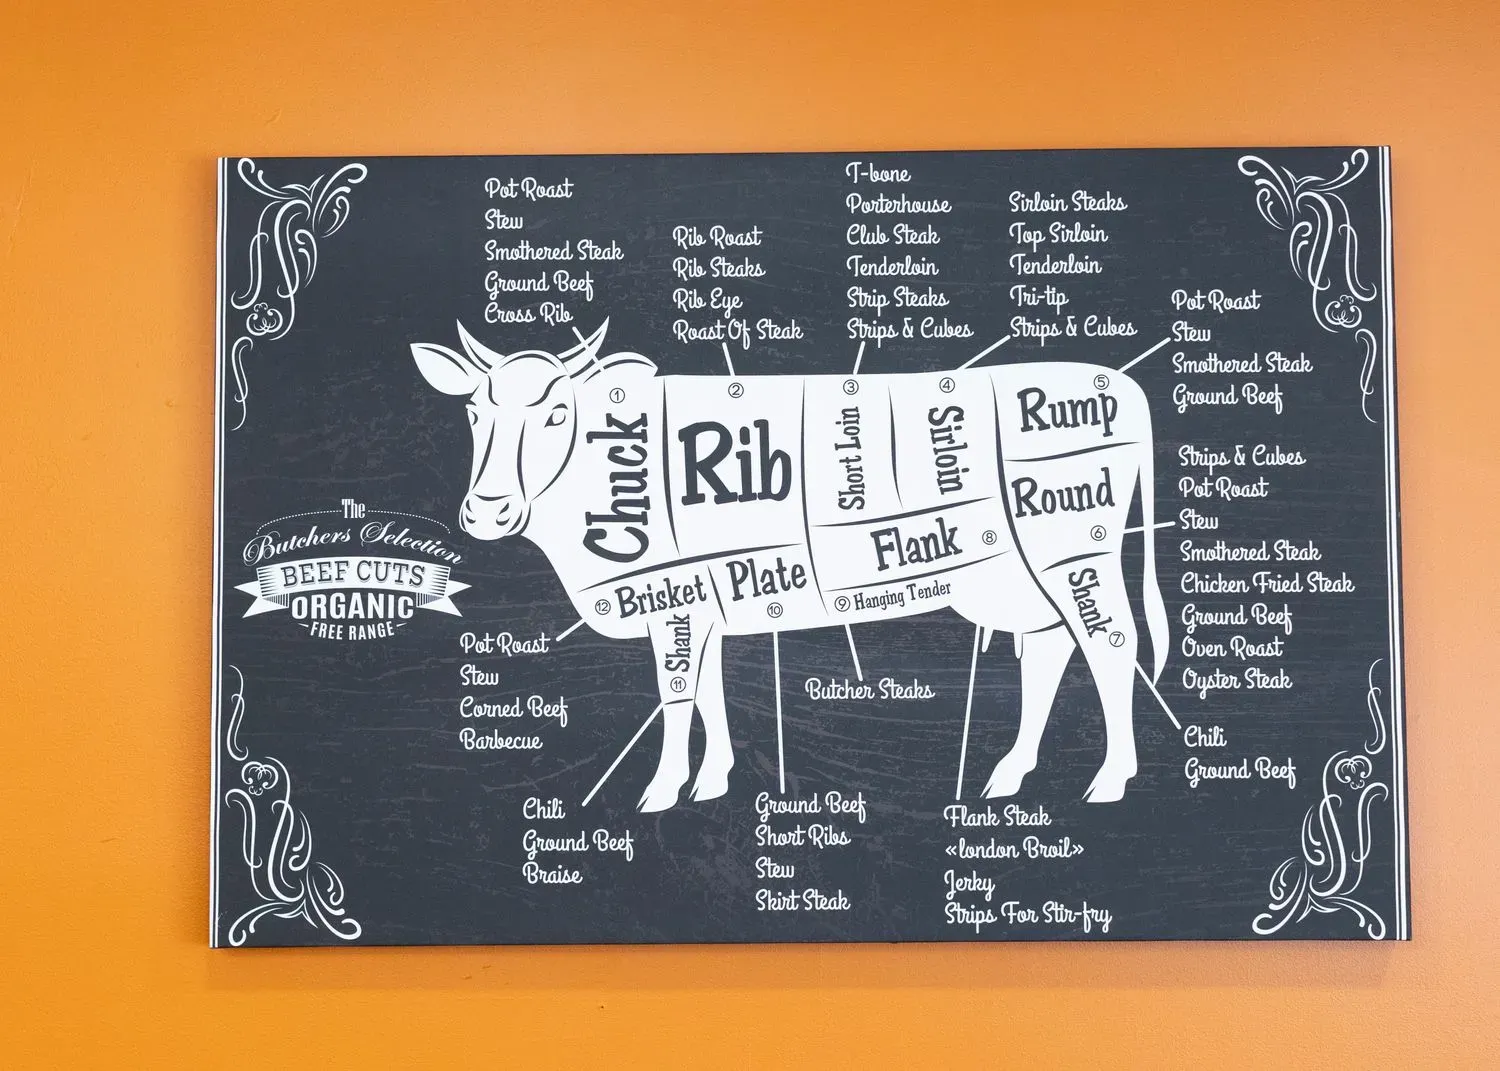 Pot Roast
Stew
Smothered Steak
Ground Beef
Cross Rib
Rib Roast
Rib Steaks
Rib Eye
Roast Of Steak
T-bone
Porterhouse
Club Steak
Tenderloin
Strip Steaks
Strips & Cubes
Sirloin Steaks
Top Sirloin
Tenderloin
Tri-tip
Strips & Cubes
Pot Roast
Stew
Smothered Steak
Ground Beef
Strips & Cubes
Pot Roast
Stew
Smothered Steak
Chicken Fried Steak
Ground Beef
Oven Roast
Oyster Steak
Chili
Ground Beef
1
Chuck
2
Rib
3
Short Loin
4
Sirloin
5
Rump
Round
6
Flank 8
9 Hanging Tender
Shank
7
Plate
10
12 Brisket
Shank
11
The
Butchers Selection
BEEF CUTS
ORGANIC
FREE RANGE
Pot Roast
Stew
Corned Beef
Barbecue
Chili
Ground Beef
Braise
Ground Beef
Short Ribs
Stew
Skirt Steak
Butcher Steaks
Flank Steak
«london Broil»
Jerky
Strips For Stir-fry